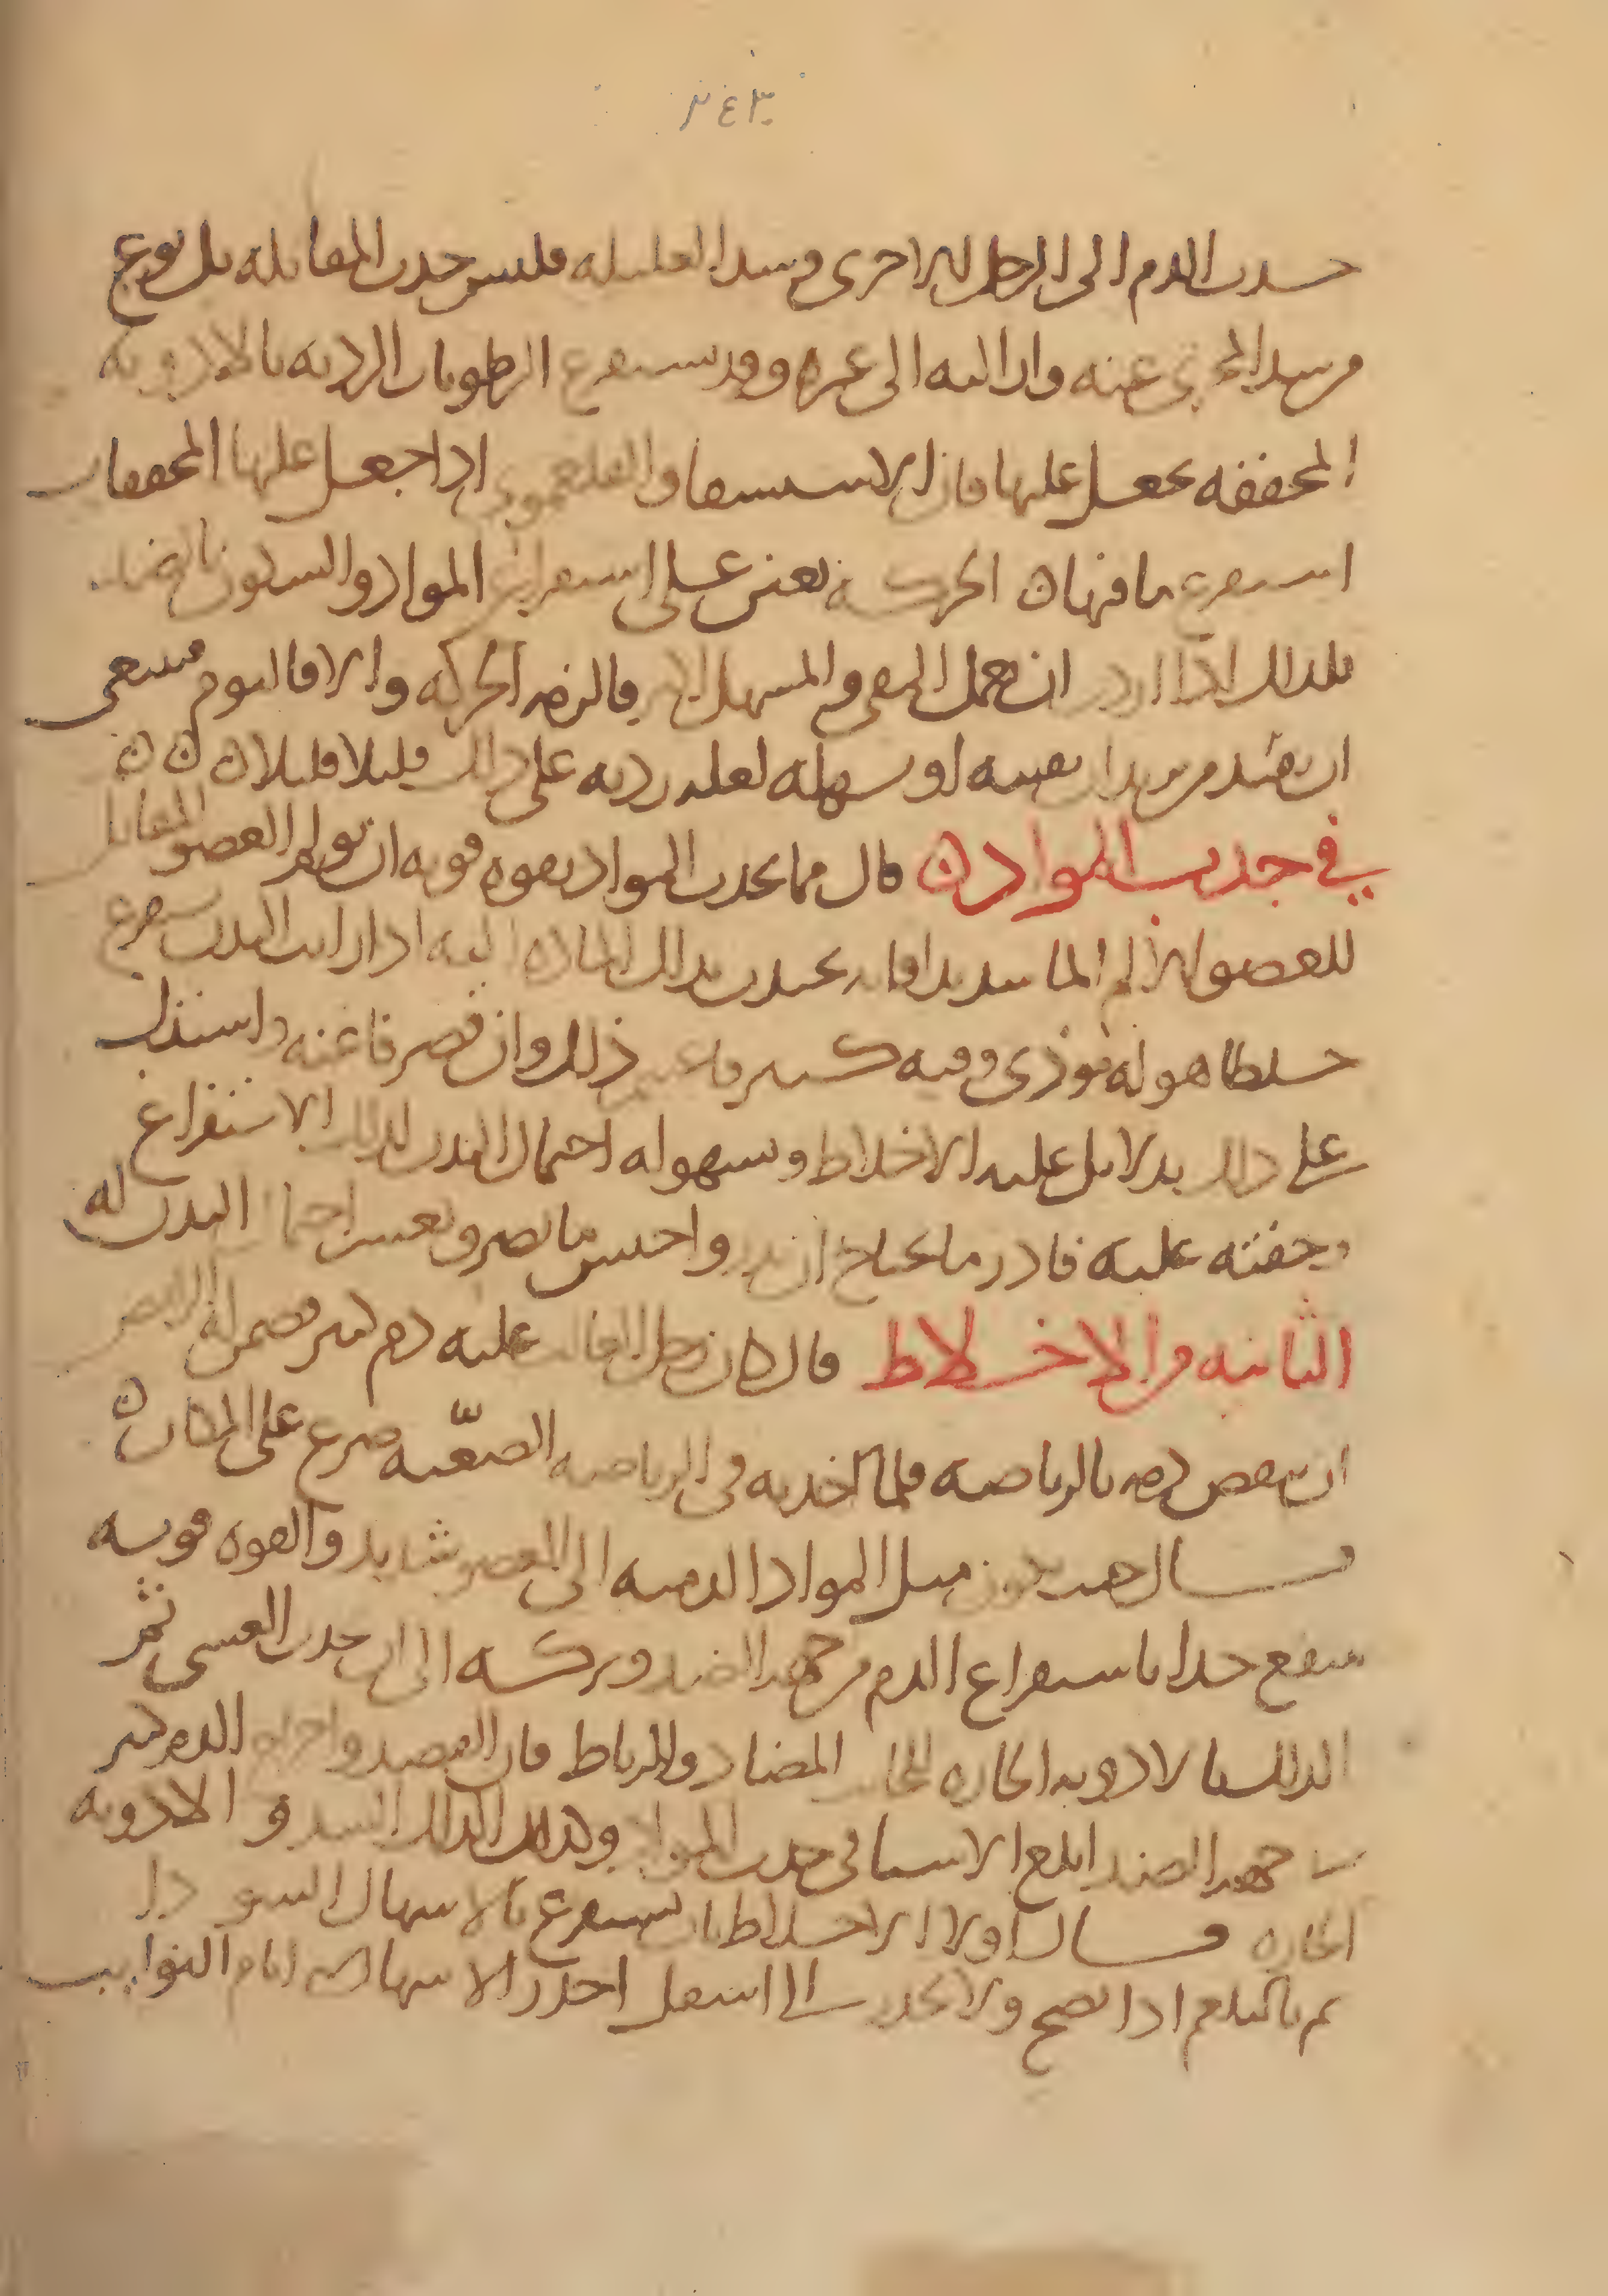 ٢٤٣
جذب الدم الى الرجل الاخرى وشد العليله فليس جذب المقابله بل نوع
من سد المجرى عنه وازالته الى غيره وقد تستفرغ الرطوبات الرديه بالادويه
المجففه تجعل عليها فان الاستسقا والفلغموني اذا جعل عليها المجففات
استفرغ ما فيها ن الحركة تعين على استفراغ المواد والسكون بالضد
فلذلك اذا اردت ان يعمل المقي والمسهل اكثر فالزمه الحركه والا فالنوم فينبغي
ان تقيد من تريد ان تقيئه او تسهله لعلة رديه على ذلك قليلا قليلا ن ن ن
في جذب المواد ن قال مما يجذب المواد بقوه قويه ان تولم العضو المقابل
للعضو الالم الما شديدا فانه يجذب بذلك الماده اليه اذا رايت البدن يستفرغ
خلطا هو له موذي وفيه كثير فاعن ذلك وان قصر فاعنه واستدل
على ذلك بدلايل غلبه الاخلاط وسهوله احتمال البدن لذلك الاستفراغ
وخفته عليه فادر ما يحتاج ان يدر واحبس ما يضر ويعسر احتمال البدن له
الثانيه من الاخلاط قال كان رجل الغالب عليه دم كثير فضمن له الرايض
ان ينقص دمه بالرياضه فلما اخذ به في الرياضه الصعبه صرع على المكان ن
قال ميل المواد الدميه الى العضو شديد والقوه قويه
ينتفع جدا باستفراغ الدم من جهه الضد وتركه الى ان يحدث الغشي ثم
الدلك بالادويه الحاره للجانب المضاد والرباط فان الفصد واخراج الدم الكثير
من جهه الضد ابلغ الاشيا في جذب المواد وكذلك الدلك الشديد و الادويه
الحاره قال اولا الاخلاط بان تستفرغ بالاسهال السودا
ثم بالبلغم اذا نضج ولا يجذب الى اسفل احذر الاسهال في ايام النوايب